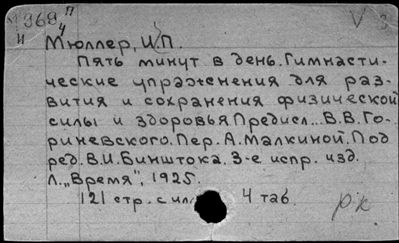 1968 п
Мюллер, И.П.
Пять минут в день. Гимнасти-
ческие упражнения для раз-
вития и сохранения физической
силы и здоровья. Предисл.. В.В.Го-
риневского. Пер. А.Малкиной. Под
ред. В.И.Бинштока. 3-е испр. изд.
Л. „Время", 1925.
121 стр. с илл 4 таб.
рк